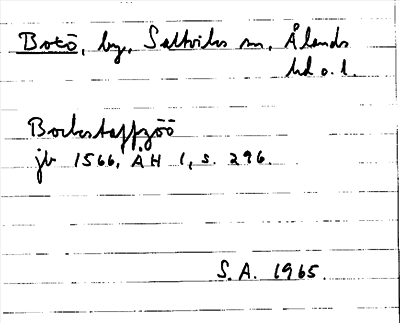 Botö, by, Saltviks sn, Ålands
hd o. l.
jb 1566, ÅH 1, s. 296.
S.A. 1965.